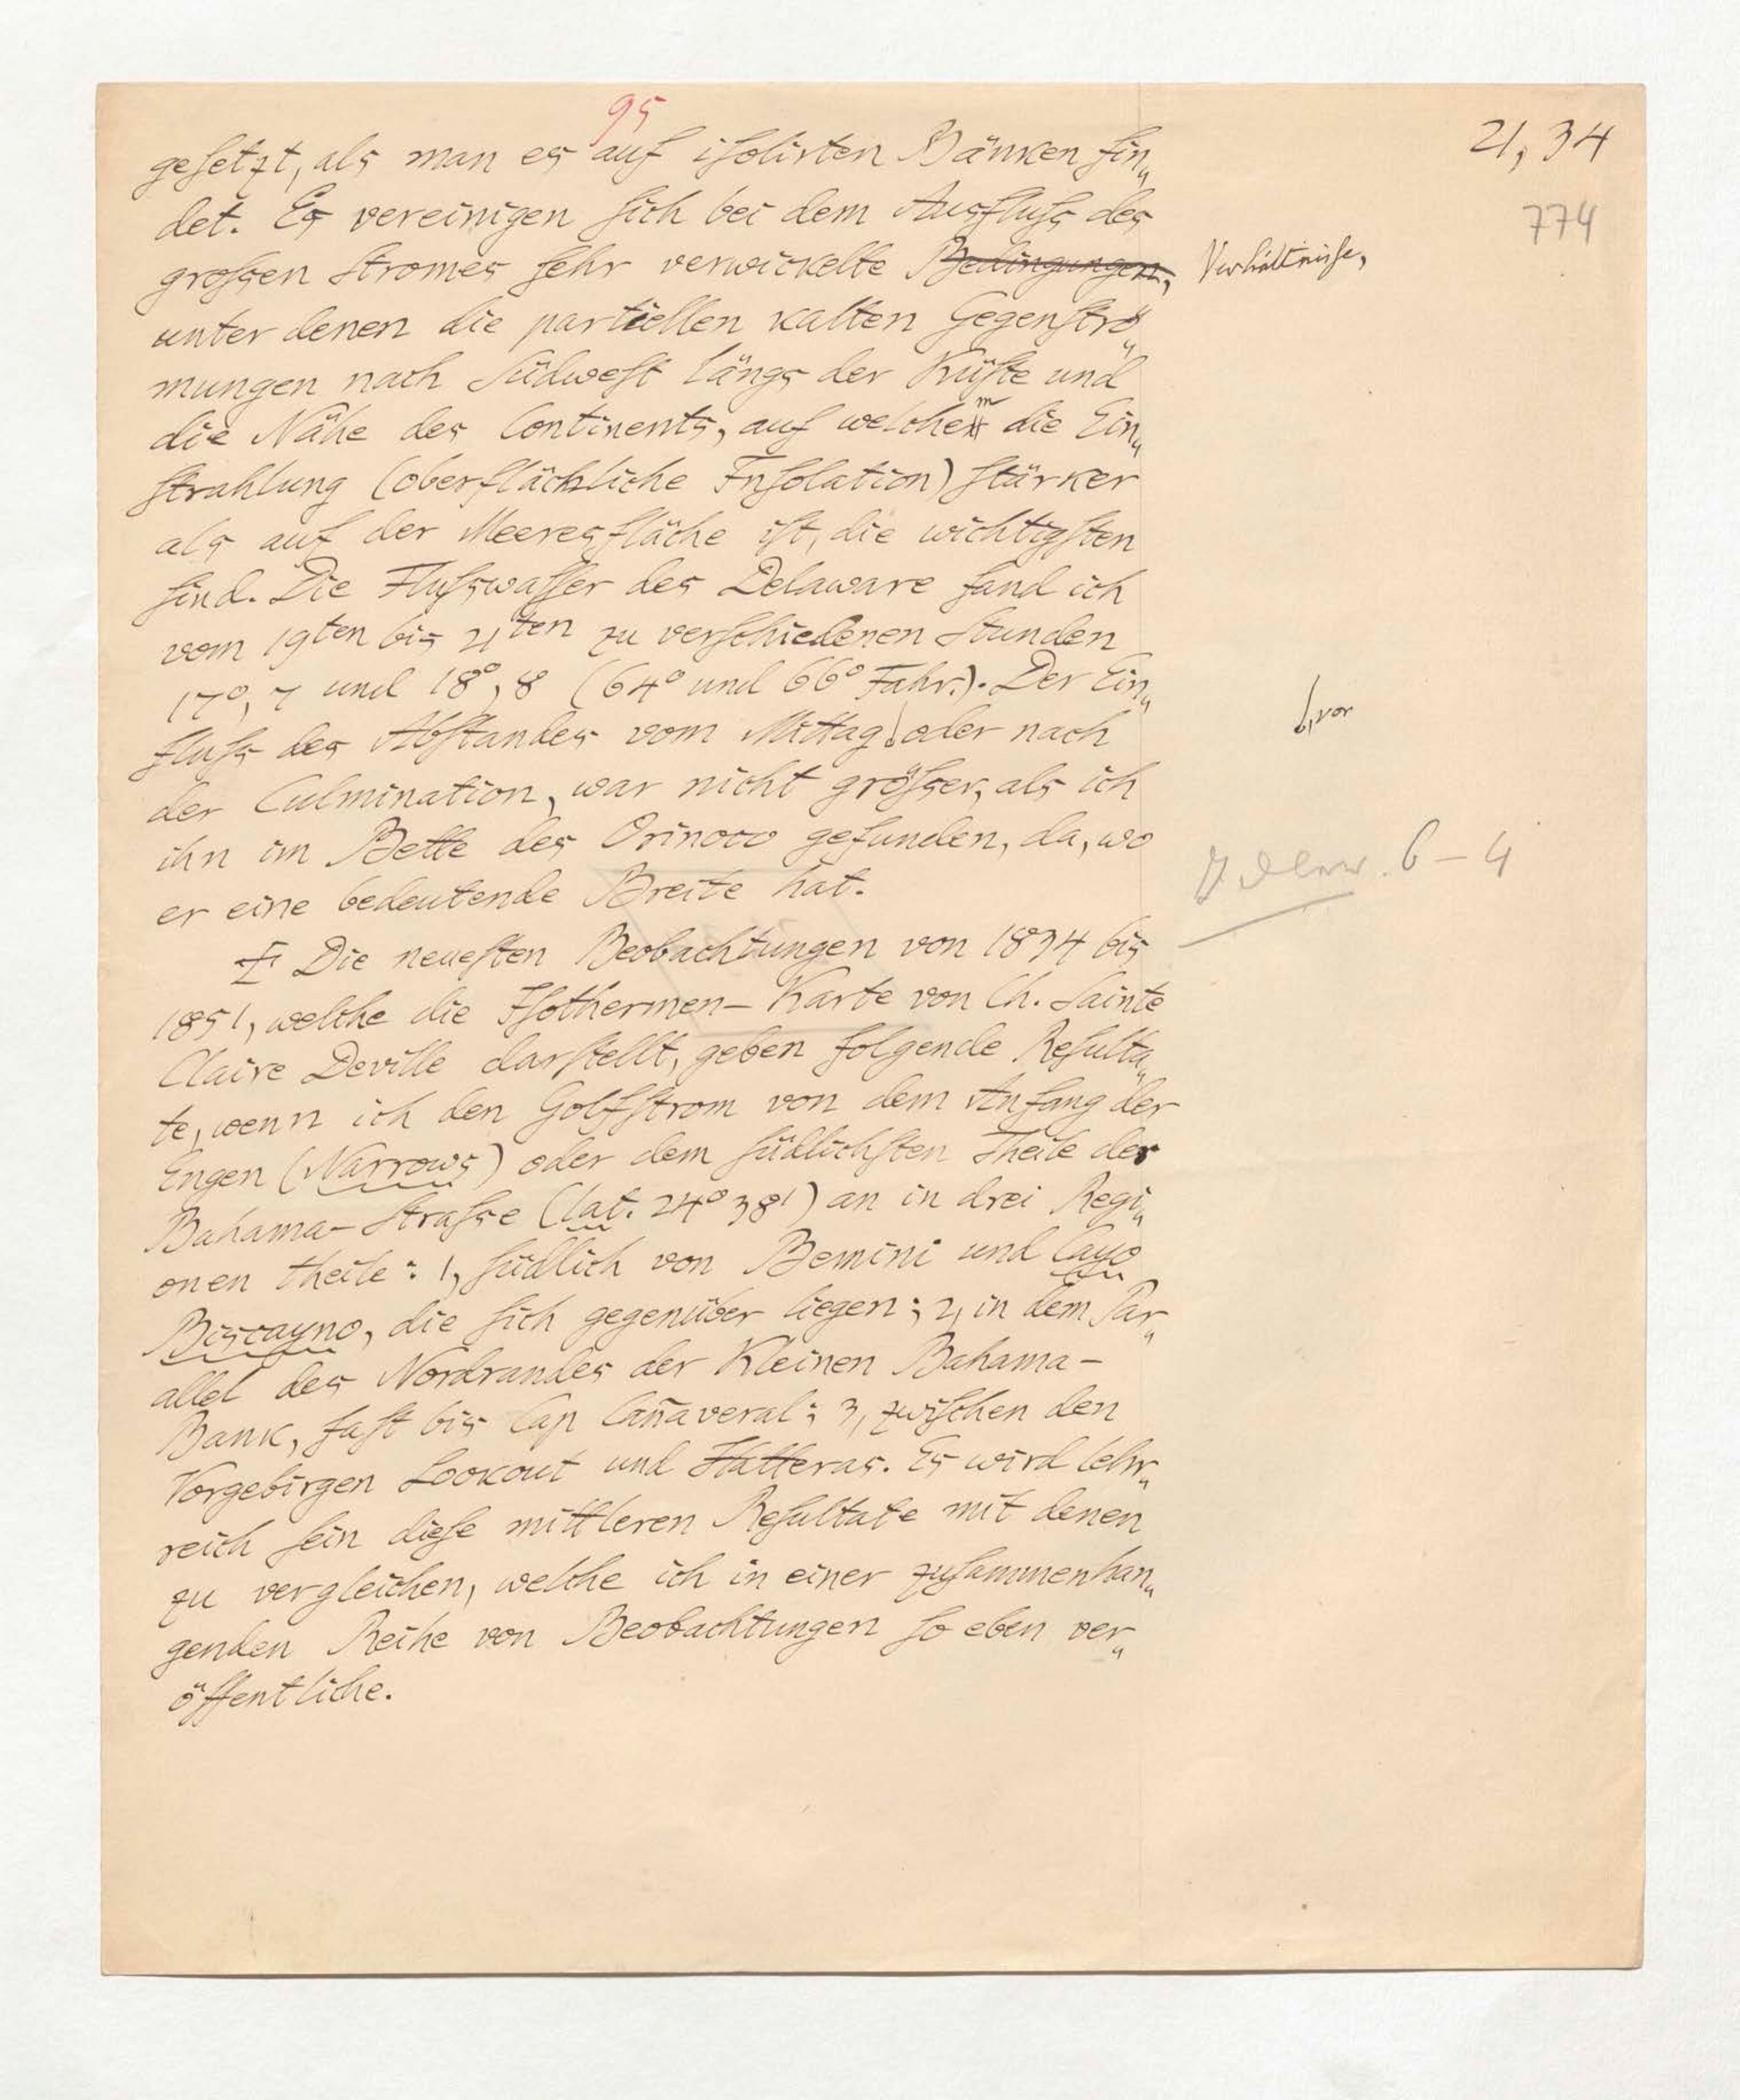 95
21, 34
774
gesetzt, als man es auf isolirten Bänken fin„
det. Es vereinigen sich bei dem Ausfluss des
grossen Stromes sehr verwickelte Bedingungen, Verhältnisse,
unter denen die partiellen kalten Gegenströ„
mungen nach Südwest längs der Küste und
die Nähe des Continents, auf welchem die Ein„
strahlung (oberflächliche Insolation) stärker
als auf der Meeresfläche ist, die wichtigsten
sind. Die Flusswasser des Delaware fand ich
vom 19ten bis 21ten zu verschiedenen Stunden
17°, 7 und 18°, 8 (64° und 66° Fahr.). Der Ein„
fluss des Abstandes vom Mittag, vor oder nach
der Culmination, war nicht grösser, als ich
ihn im Bette des Orinoco gefunden, da, wo
er eine bedeutende Breite hat.
6 – 4
Die neuesten Beobachtungen von 1834 bis
1851, welche die Isothermen- Karte von Ch. Sainte
Claire Deville darstellt, geben folgende Resulta„
te, wenn ich den Golfstrom von dem Anfang der
Engen (Narrows) oder dem südlichsten Theile der
Bahama- Strasse (lat. 24° 38') an in drei Regi„
onen theile: 1, südlich von Bemini und Cayo
Biscayno, die sich gegenüber liegen; 2, in dem Par„
allel des Nordrandes der Kleinen Bahama-
Bank, fast bis Cap Cañaveral; 3, zwischen den
Vorgebirgen Lookout und Hatteras. Es wird lehr„
reich sein diese mittleren Resultate mit denen
zu vergleichen, welche ich in einer zusammenhan„
genden Reihe von Beobachtungen so eben ver„
öffentliche.